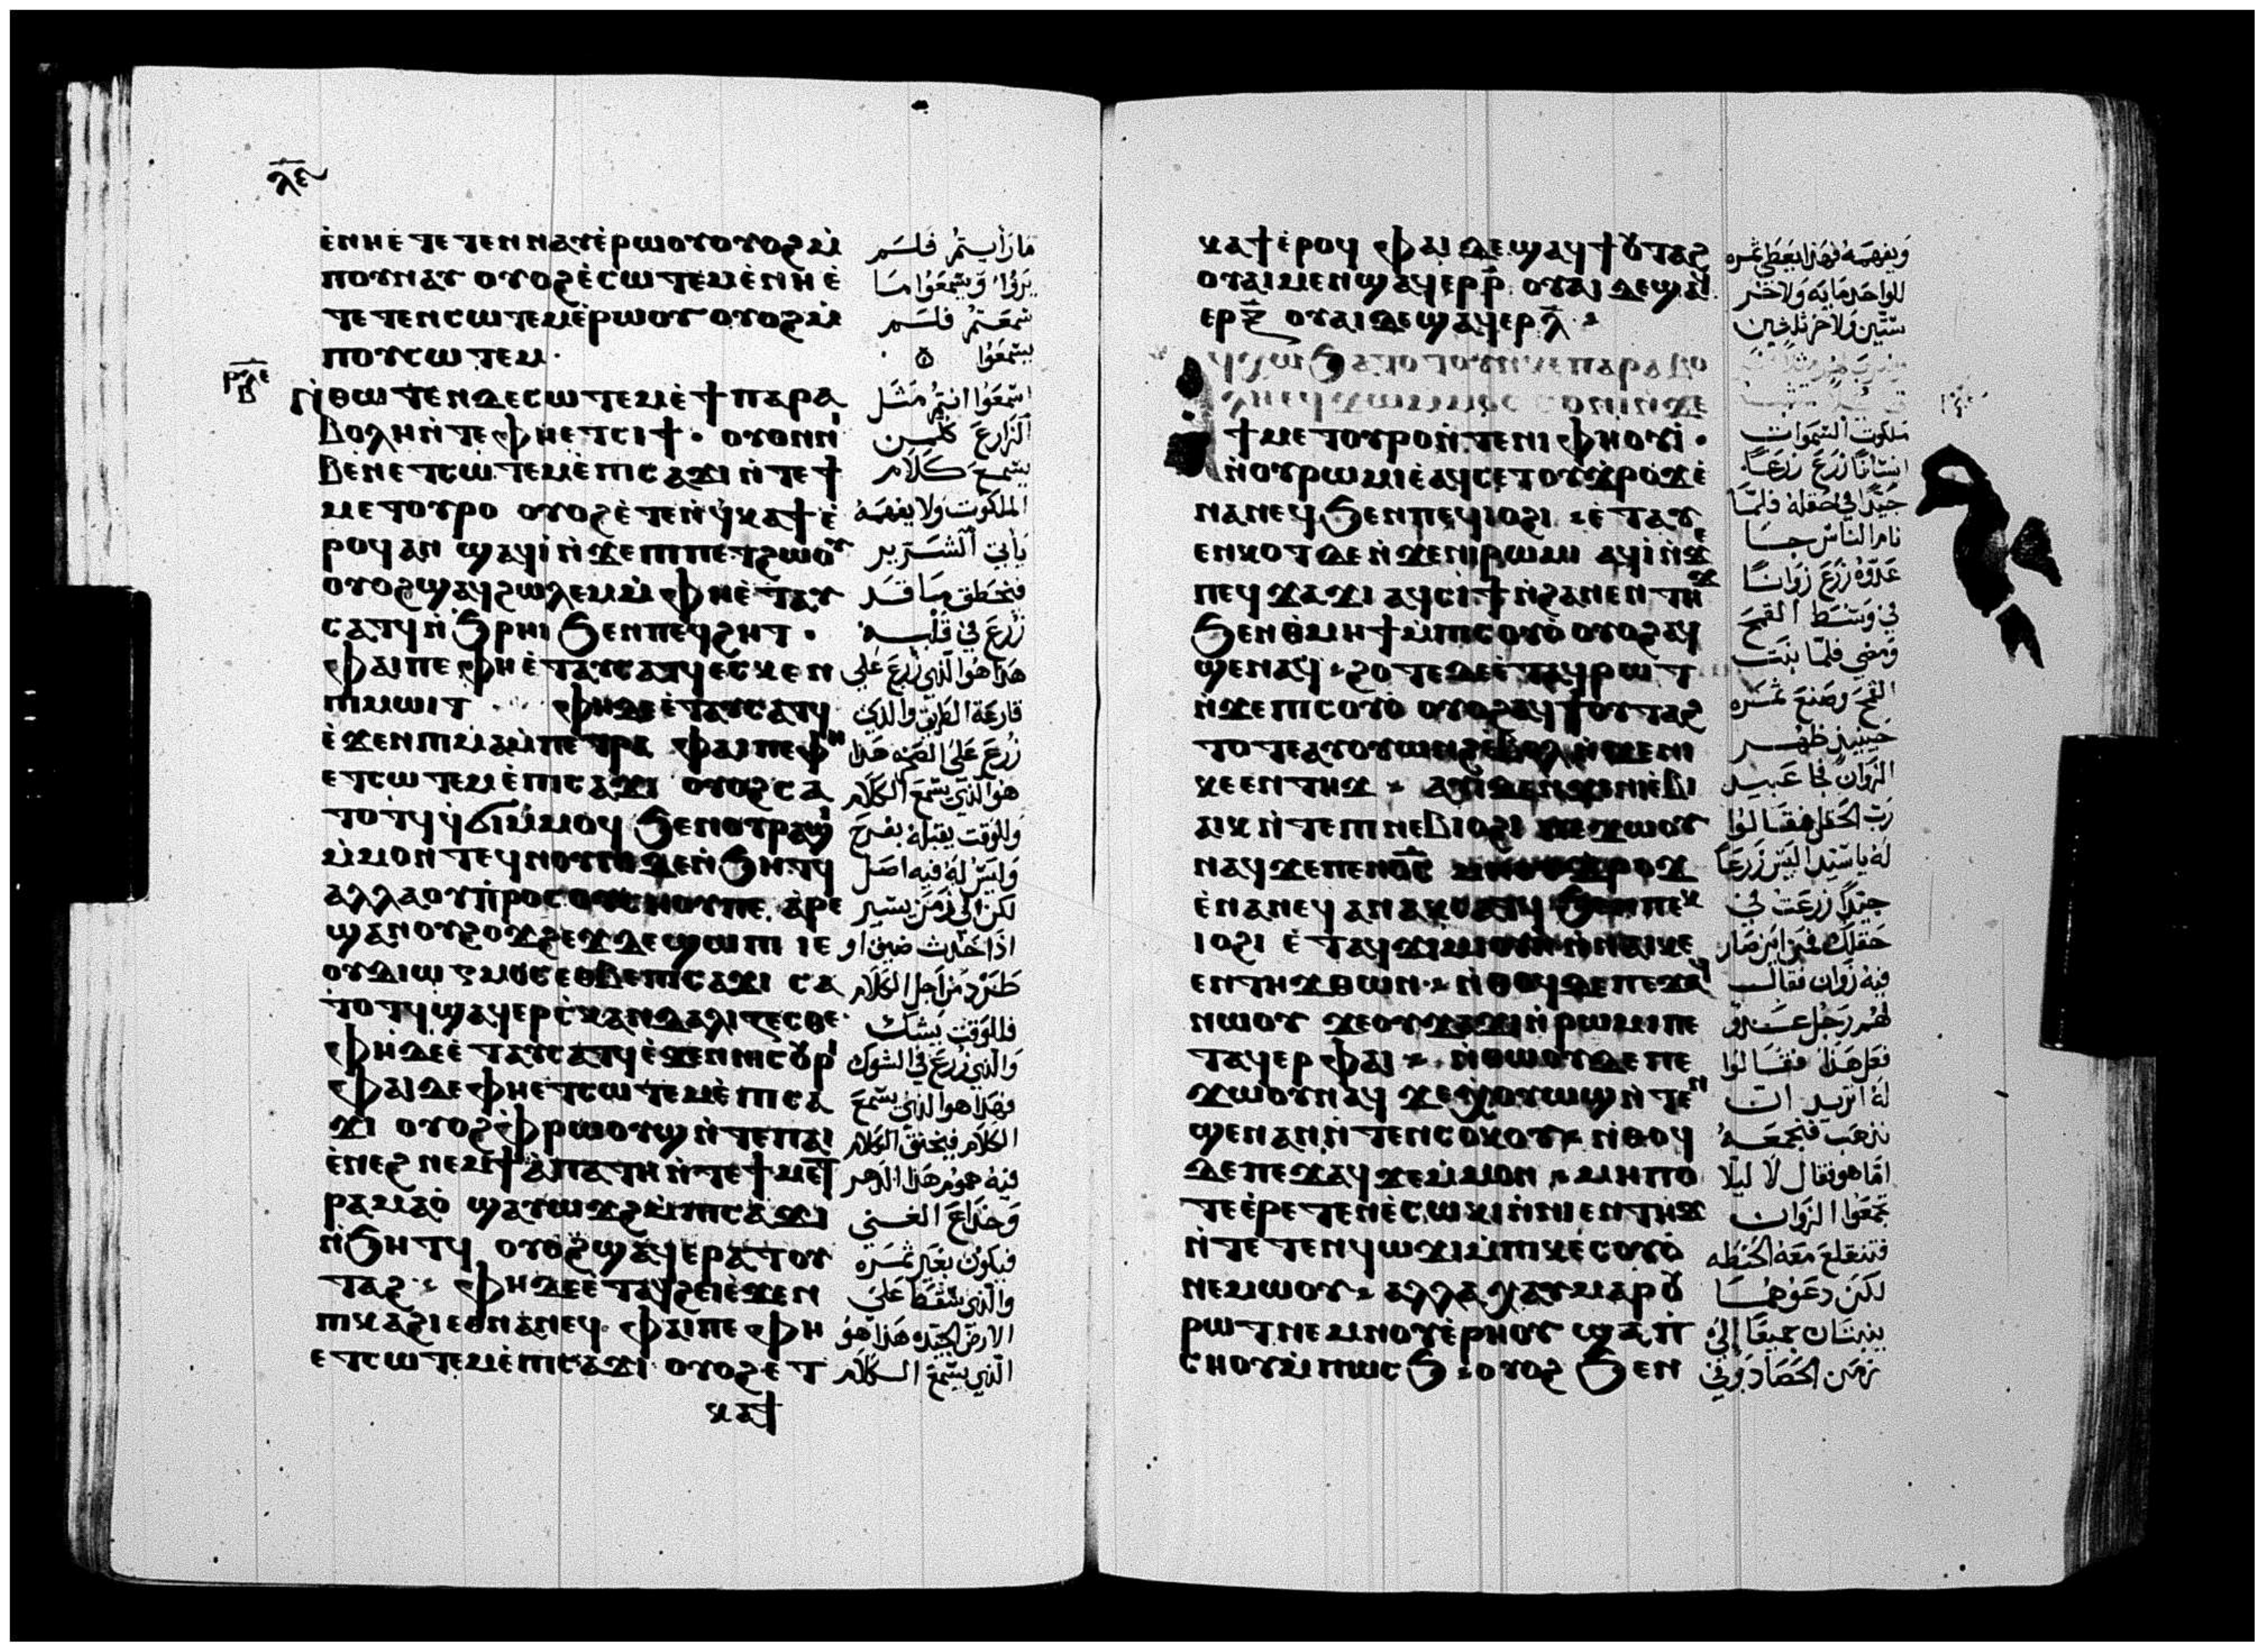 ⲗⲉ
ⲉ̀ⲛⲏⲉ̀ⲧⲉⲧⲉⲛⲛⲁⲩⲉ̀ⲣⲱⲟⲩⲟⲩⲟϩⲙ̀
ⲡⲟⲩⲛⲁⲩ ⲟⲩⲟϩⲉ̀ⲥⲱⲧⲉⲙⲉ̀ⲛⲏⲉ̀
ⲧⲉⲧⲉⲛⲥⲱⲧⲉⲙⲉ̀ⲣⲱⲟⲩ ⲟⲩⲟϩⲙ̀
ⲡⲟⲩⲥⲱⲧⲉⲙ·
ⲣⲗⲉ
ⲃ
ⲛ̀ⲑⲱⲧⲉⲛⲇⲉⲥⲱⲧⲉⲙⲉ̀ϯⲡⲁⲣⲁ
ⲃⲟⲗⲏⲛ̀ⲧⲉⲫⲏⲉⲧⲥⲓϯ· ⲟⲩⲟⲛⲛⲓ
ⲃⲉⲛⲉⲧⲥⲱⲧⲉⲙⲉ̀ⲡⲓⲥⲁϫⲓⲛ̀ⲧⲉϯ
ⲙⲉⲧⲟⲩⲣⲟ ⲟⲩⲟϩⲉ̀ⲧⲉⲛϥ̀ⲕⲁϯⲉ̀
ⲣⲟϥⲁⲛ ϣⲁϥⲓ̀ⲛ̀ϫⲉⲡⲓⲡⲉⲧϩⲱⲟⲩ
ⲟⲩⲟϩϣⲁϥϩⲱⲗⲉⲙⲙ̀ⲫⲏⲉ̀ⲧⲁⲩ
ⲥⲁⲧϥⲛ̀ϧⲣⲏⲓϧⲉⲛⲡⲉϥϩⲏⲧ·
ⲫⲁⲓⲡⲉⲫⲏⲉ̀ⲧⲁⲩⲥⲁⲧϥⲉⲥⲕⲉⲛ
ⲡⲓⲙⲱⲓⲧ ⲫⲏⲇⲉⲉ̀ⲧⲁⲩⲥⲁⲧϥ
ⲉ̀ϫⲉⲛⲡⲓⲙⲁⲙ̀ⲡⲉⲧⲣⲁ ⲫⲁⲓⲡⲉⲫⲏ
ⲉⲧⲥⲱⲧⲉⲙⲉ̀ⲡⲓⲥⲁϫⲓ ⲟⲩⲟϩⲥⲁ
ⲧⲟⲧϥϥ̀ϭⲓⲙ̀ⲙⲟϥ ϧⲉⲛⲟⲩⲣⲁϣⲓ
ⲙ̀ⲙⲟⲛⲧⲉϥⲛⲟⲩⲛⲓⲇⲉⲛ̀ϧⲏⲧϥ
ⲁⲗⲗⲁⲟⲩⲡ̀ⲣⲟⲥⲟⲩⲥⲏⲟⲩⲡⲉ ⲁⲣⲉ
ϣⲁⲛⲟⲩϩⲟϫϩⲉϫⲇⲉϣⲱⲡⲓ ⲓⲉ
ⲟⲩⲇⲓⲱⲅⲙⲟⲥⲉⲑⲃⲉⲡⲓⲥⲁϫⲓ ⲥⲁ
ⲧⲟⲧϥϣⲁϥⲉⲣⲥ̀ⲕⲁⲛⲇⲁⲗⲓⲍⲉⲥⲑⲉ
ⲫⲏⲇⲉⲉ̀ⲧⲁⲩⲥⲁⲧϥⲉ̀ϫⲉⲛⲛⲓⲥⲟⲩⲣⲓ
ⲫⲁⲓⲇⲉⲫⲏⲉⲧⲥⲱⲧⲉⲙⲉ̀ⲡⲓⲥⲁ
ϫⲓ ⲟⲩⲟϩⲫ̀ⲣⲱⲟⲩϣⲛ̀ⲧⲉⲡⲁⲓ
ⲉ̀ⲛⲉϩ ⲛⲉⲙϯⲁ̀ⲡⲁⲧⲏⲛ̀ⲧⲉϯⲙⲉⲧ
ⲣⲁⲙⲁⲟ̀ ϣⲁⲩⲱϫϩⲙ̀ⲡⲓⲥⲁϫⲓ
ⲛ̀ϧⲏⲧϥ ⲟⲩⲟϩϣⲁϥⲉⲣⲁⲧⲟⲩ
ⲧⲁϩ· ⲫⲏⲇⲉⲉ̀ⲧⲁϥϩⲉⲓⲉ̀ϫⲉⲛ
ⲡⲓⲕⲁϩⲓⲉⲑⲛⲁⲛⲉϥ· ⲫⲁⲓⲡⲉⲫⲏ
ⲉⲧⲥⲱⲧⲉⲙⲉ̀ⲡⲓⲥⲁϫⲓ ⲟⲩⲟϩⲉⲧ
ⲕⲁϯ
مَا رَأيتمُ فَلَم
يَرَوْا وَيَسْمَعُوا مَا
سَمعتمُ فلم
يسَمعُوا
اسْمَعُوا انتمُ مَثَل
الزَارعَ كلمن
يسَمع كَلَام
الملكوت وَلا يفهَمَهُ
يأتى الشَرير
فيخطف مَا قَد
زُرعَ فى قَلْبه
هَذا هُوا الّذي زُرعَ عَلي
قارعَة الطَريق والذي
زُرعَ عَلىَ الصَخرَه هَذا
هُوَ الّذي يسَمع الكَلَام
وللوَقت يَقبَلهُ بفَرح
وَلَيسَ لَهُ فيه اصَل
لكن الى زَمَن يسَير
اذَا حَدث ضيق او
طَرْدٌ من اجل الكَلَام
فللوَقت يشَك
وَالّذي زُرعَ فى الشوك
فهَذا هوا الذي يسَمع
الكلَام فيخنق الكلَام
فيه هموم هَذا الدَهر
وَخدَاعَ الغنى
فيكون بغَير ثمَره
والّذي سَقَط عَلى
الارضَ الجَيده هَذا هُو
الّذي يسَمعَ الكَلَام
ⲕⲁϯⲉ̀ⲣⲟϥ ⲫⲁⲓⲇⲉϣⲁϥϯⲟⲩⲧⲁϩ
ⲟⲩⲁⲓⲙⲉⲛϣⲁϥⲉⲣⲣ̄ ⲟⲩⲁⲓⲇⲉϣⲁϥ
ⲉⲣⲝ̄ ⲟⲩⲁⲓⲇⲉϣⲁϥⲉⲣⲗ̄
ϯⲙⲉⲧⲟⲩⲣⲟⲛ̀ⲧⲉⲛⲓⲫⲏⲟⲩⲓ̀·
ⲛ̀ⲟⲩⲣⲱⲙⲓⲉ̀ⲁϥⲥⲉⲧⲟⲩϫ̀ⲣⲟϫⲉ̀
ⲛⲁⲛⲉϥϧⲉⲛⲡⲉϥⲓⲟϩⲓ ⲉ̀ⲧⲁⲩ
ⲉⲛⲕⲟⲧⲇⲉⲛ̀ϫⲉⲛⲓⲣⲱⲙⲓ ⲁϥⲓ̀ⲛ̀ϫⲉ
ⲡⲉϥϫⲁϫⲓ ⲁϥⲥⲓϯⲛ̀ϩⲁⲛⲉⲛⲧⲏϫ
ϧⲉⲛⲑ̀ⲙⲏϯⲙ̀ⲡⲓⲥⲟⲩⲟ̀ ⲟⲩⲟϩⲁϥ
ϣⲉⲛⲁϥ ϩⲟⲧⲉⲇⲉⲉ̀ⲧⲁϥⲣⲱⲧ
ⲛ̀ϫⲉⲡⲓⲥⲟⲩⲟ̀ ⲟⲩⲟϩⲁϥϯⲟⲩⲧⲁϩ
ⲧⲟⲧⲉⲁⲩⲟⲩⲱⲛϩⲉ̀ⲃⲟⲗⲛ̀ϫⲉⲛⲓ
ⲕⲉⲉⲛⲧⲏϫ ⲁⲩⲓ̀ⲇⲉⲛ̀ϫⲉⲛⲓⲉ̀ⲃⲓ
ⲁⲓⲕ ⲛ̀ⲧⲉⲡⲓⲛⲉⲃⲓⲟϩⲓ ⲡⲉϫⲱⲟⲩ
ⲛⲁϥϫⲉⲡⲉⲛⲟ̄ⲥ̄ ⲙⲏⲟⲩϫⲣⲟϫ
ⲉ̀ⲛⲁⲛⲉϥⲁⲛⲁⲕⲥⲁⲧϥ ϧⲉⲛⲡⲉⲕ
ⲓⲟϩⲓ ⲉ̀ⲧⲁϥϫⲓⲙⲟⲩⲛ̀ⲛⲁⲓⲕⲉ
ⲉⲛⲧⲏϫⲑⲱⲛ· ⲛ̀ⲑⲟϥⲇⲉⲡⲉϫⲁϥ
ⲛⲱⲟⲩ ϫⲉⲟⲩϫⲁϫⲓⲛ̀ⲣⲱⲙⲓⲡⲉ
ⲧⲁϥⲉⲣⲫⲁⲓ ⲛ̀ⲑⲱⲟⲩⲇⲉⲡⲉ
ϫⲱⲟⲩⲛⲁϥ ϫⲉⲭ̀ⲟⲩⲱϣⲛ̀ⲧⲉⲛ
ϣⲉⲛⲁⲛⲛ̀ⲧⲉⲛⲥⲟⲕⲟⲩ ⲛ̀ⲑⲟϥ
ⲇⲉⲡⲉϫⲁϥϫⲉⲙ̀ⲙⲟⲛ ⲙⲏⲡⲟ
ⲧⲉⲉ̀ⲣⲉⲧⲉⲛⲉ̀ⲥⲱⲕⲓⲛ̀ⲛⲓⲉⲛⲧⲏϫ
ⲛ̀ⲧⲉⲧⲉⲛϥⲱϫⲓⲙ̀ⲡⲓⲕⲉⲥⲟⲩⲟ̀
ⲛⲉⲙⲱⲟⲩ ⲁⲗⲗⲁⲭⲁⲩⲙⲁⲣⲟⲩ
ⲣⲱⲧⲛⲉⲙⲛⲟⲩⲉ̀ⲣⲏⲟⲩ ϣⲁⲡ̀
ⲥⲏⲟⲩⲙ̀ⲡⲱⲥϧ ⲟⲩⲟϩ ϧⲉⲛ
وَيفهمَهُ فهَذا يعَطي ثمره
للواحد مايَه وَلاخَر
ستّين وَلاخر ثلثين
ملكوت السّمَوات
انسَانًا زَرَعَ زرعًا
جَيّدًا في حَقله فلمّا
نام النَاسْ جَا
عَدّوه زَرَعَ زَوَانًا
في وَسَط القمح
وَمضى فلمّا نبَت
القمحَ وصَنعَ ثمَره
حينيذ ظهر
الزَوان فجا عَبيد
رَبّ الحَقل فقَالوا
لهُ ياسَيّد اليسَ زَرعًا
جيّدًا زرعَت في
حَقلك فمَن اين صَار
فيه زَوان فقَال
لهُم رَجل عَدو
فعل هَذا فقَالوا
لهُ اتريد ان
نذهَب فنجمعَهُ
امّا هو فقال لَا ليلَا
تجمَعُوا الزَوان
فتنقلعَ معَهُ الحنطَه
لكن دعَوهُمَا
ينبتَان جميعًا إلى
زمَن الحَصَاد وَفي